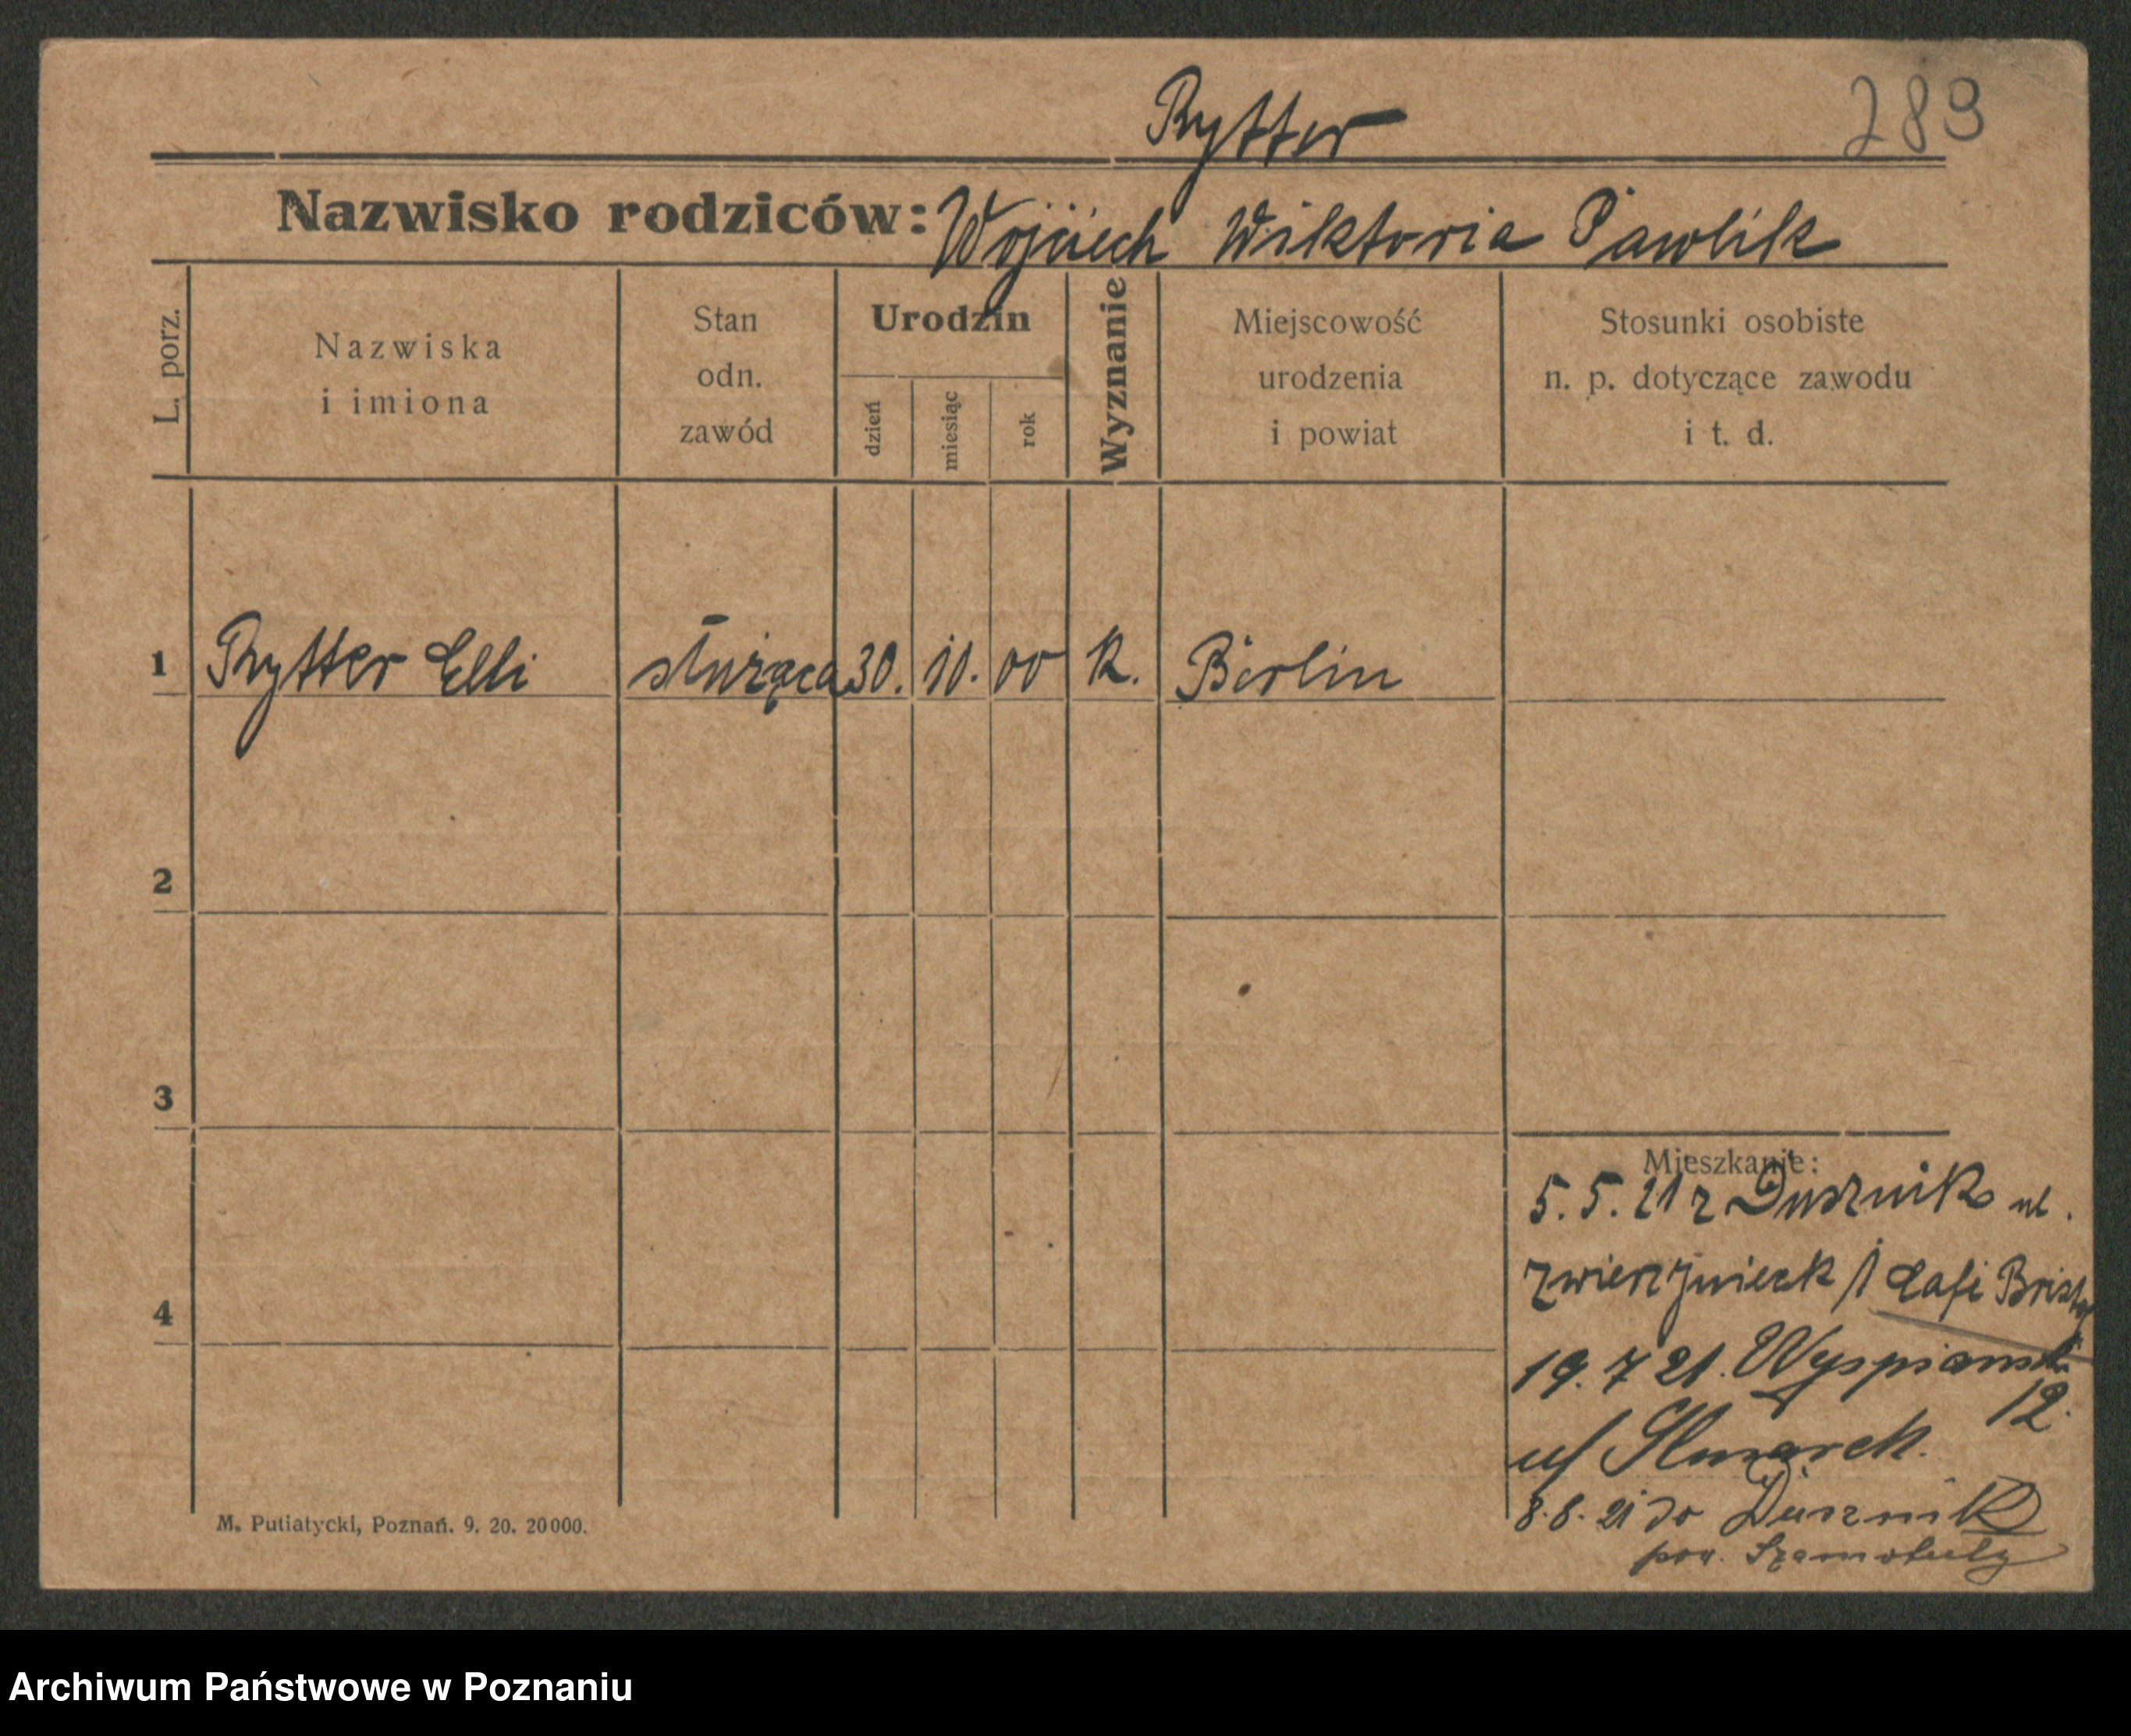 Rytter
289
Nazwisko rodziców: Wojciech Wiktoria Pawlik
L. porz.
Nazwiska
i imiona
Stan
odn.
zawód
Urodzin
dzień
miesiąc
rok
Wyznanie
Miejscowość
urodzenia
i powiat
Stosunki osobiste
n. p. dotyczące zawodu
i t. d.
1 Rytter Elli służąca 30. 10. 00 K. Berlin
2
3
4
Mieszkanie:
5. 5. 21 z Dusznik ul.
Zwierzynieck 1 Cafe Bristol
19. 7 21. Wyspiański
12.
u/
8. 8. 21 do Dusznik
pow. Szamotuły
M. Putiatycki, Poznań. 9. 20. 20000.
Archiwum Państwowe w Poznaniu